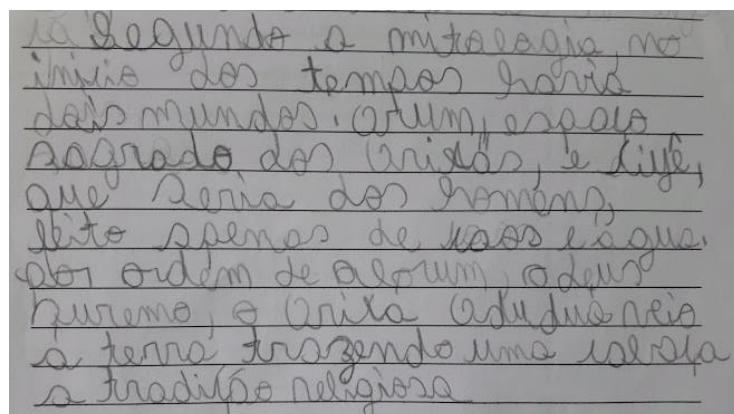 Segundo a mitologia, no
inicio dos tempos havia
dois mundos. Orum, espaço
sagrado dos Orixás, e Aiyê,
que seria dos homens,
feito apenas de caos e água.
por ordem de Olorum, o deus
puremo, o Orixá Oduduá veio
a terra trazendo uma cabaça
a tradição religiosa